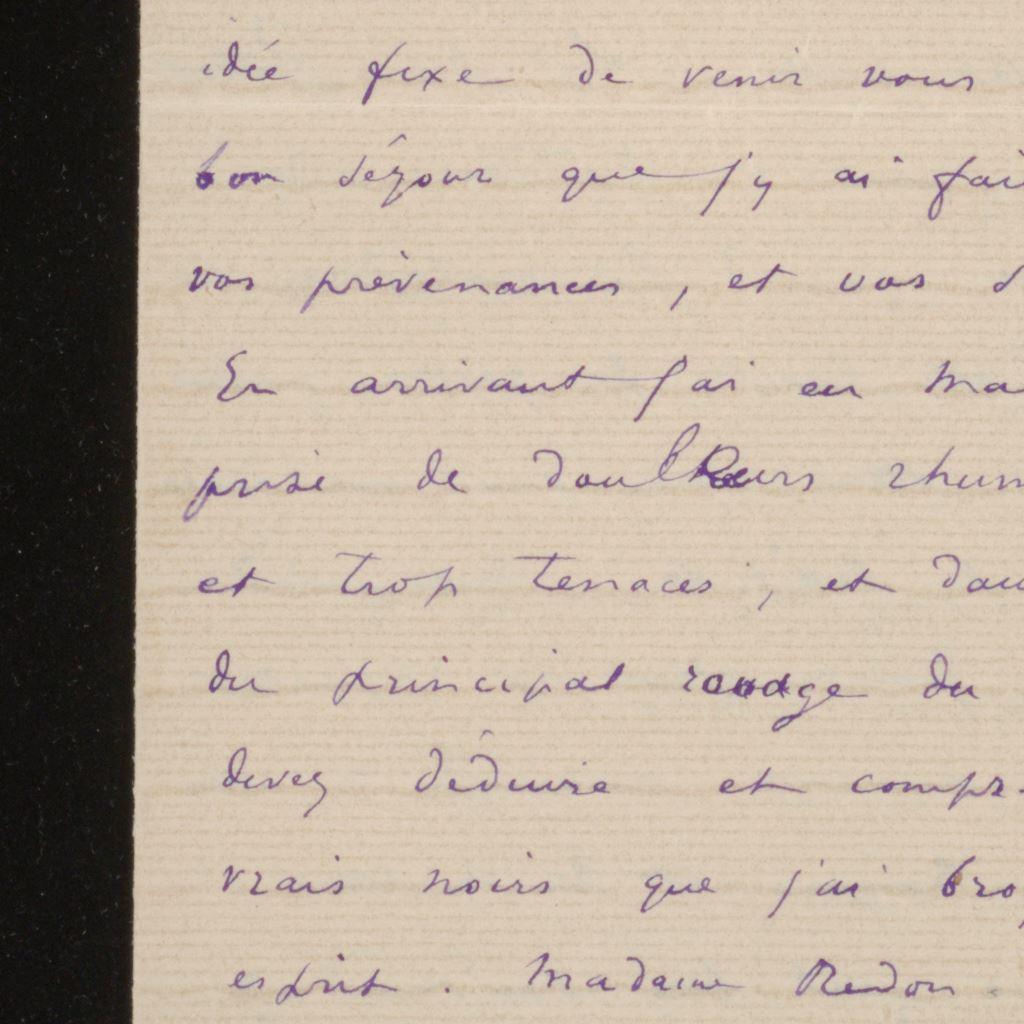 idée fixe de venir vous
bon séjour que j'y ai fai
vos prévenances, et vos d
En arrivant j'ai eu Ma
prise de douleurs rhum
et trop tenaces, et dou
du principal rouage du
devez déduire et compr
vrais noirs que j'ai bro
esprit. Madame Redon